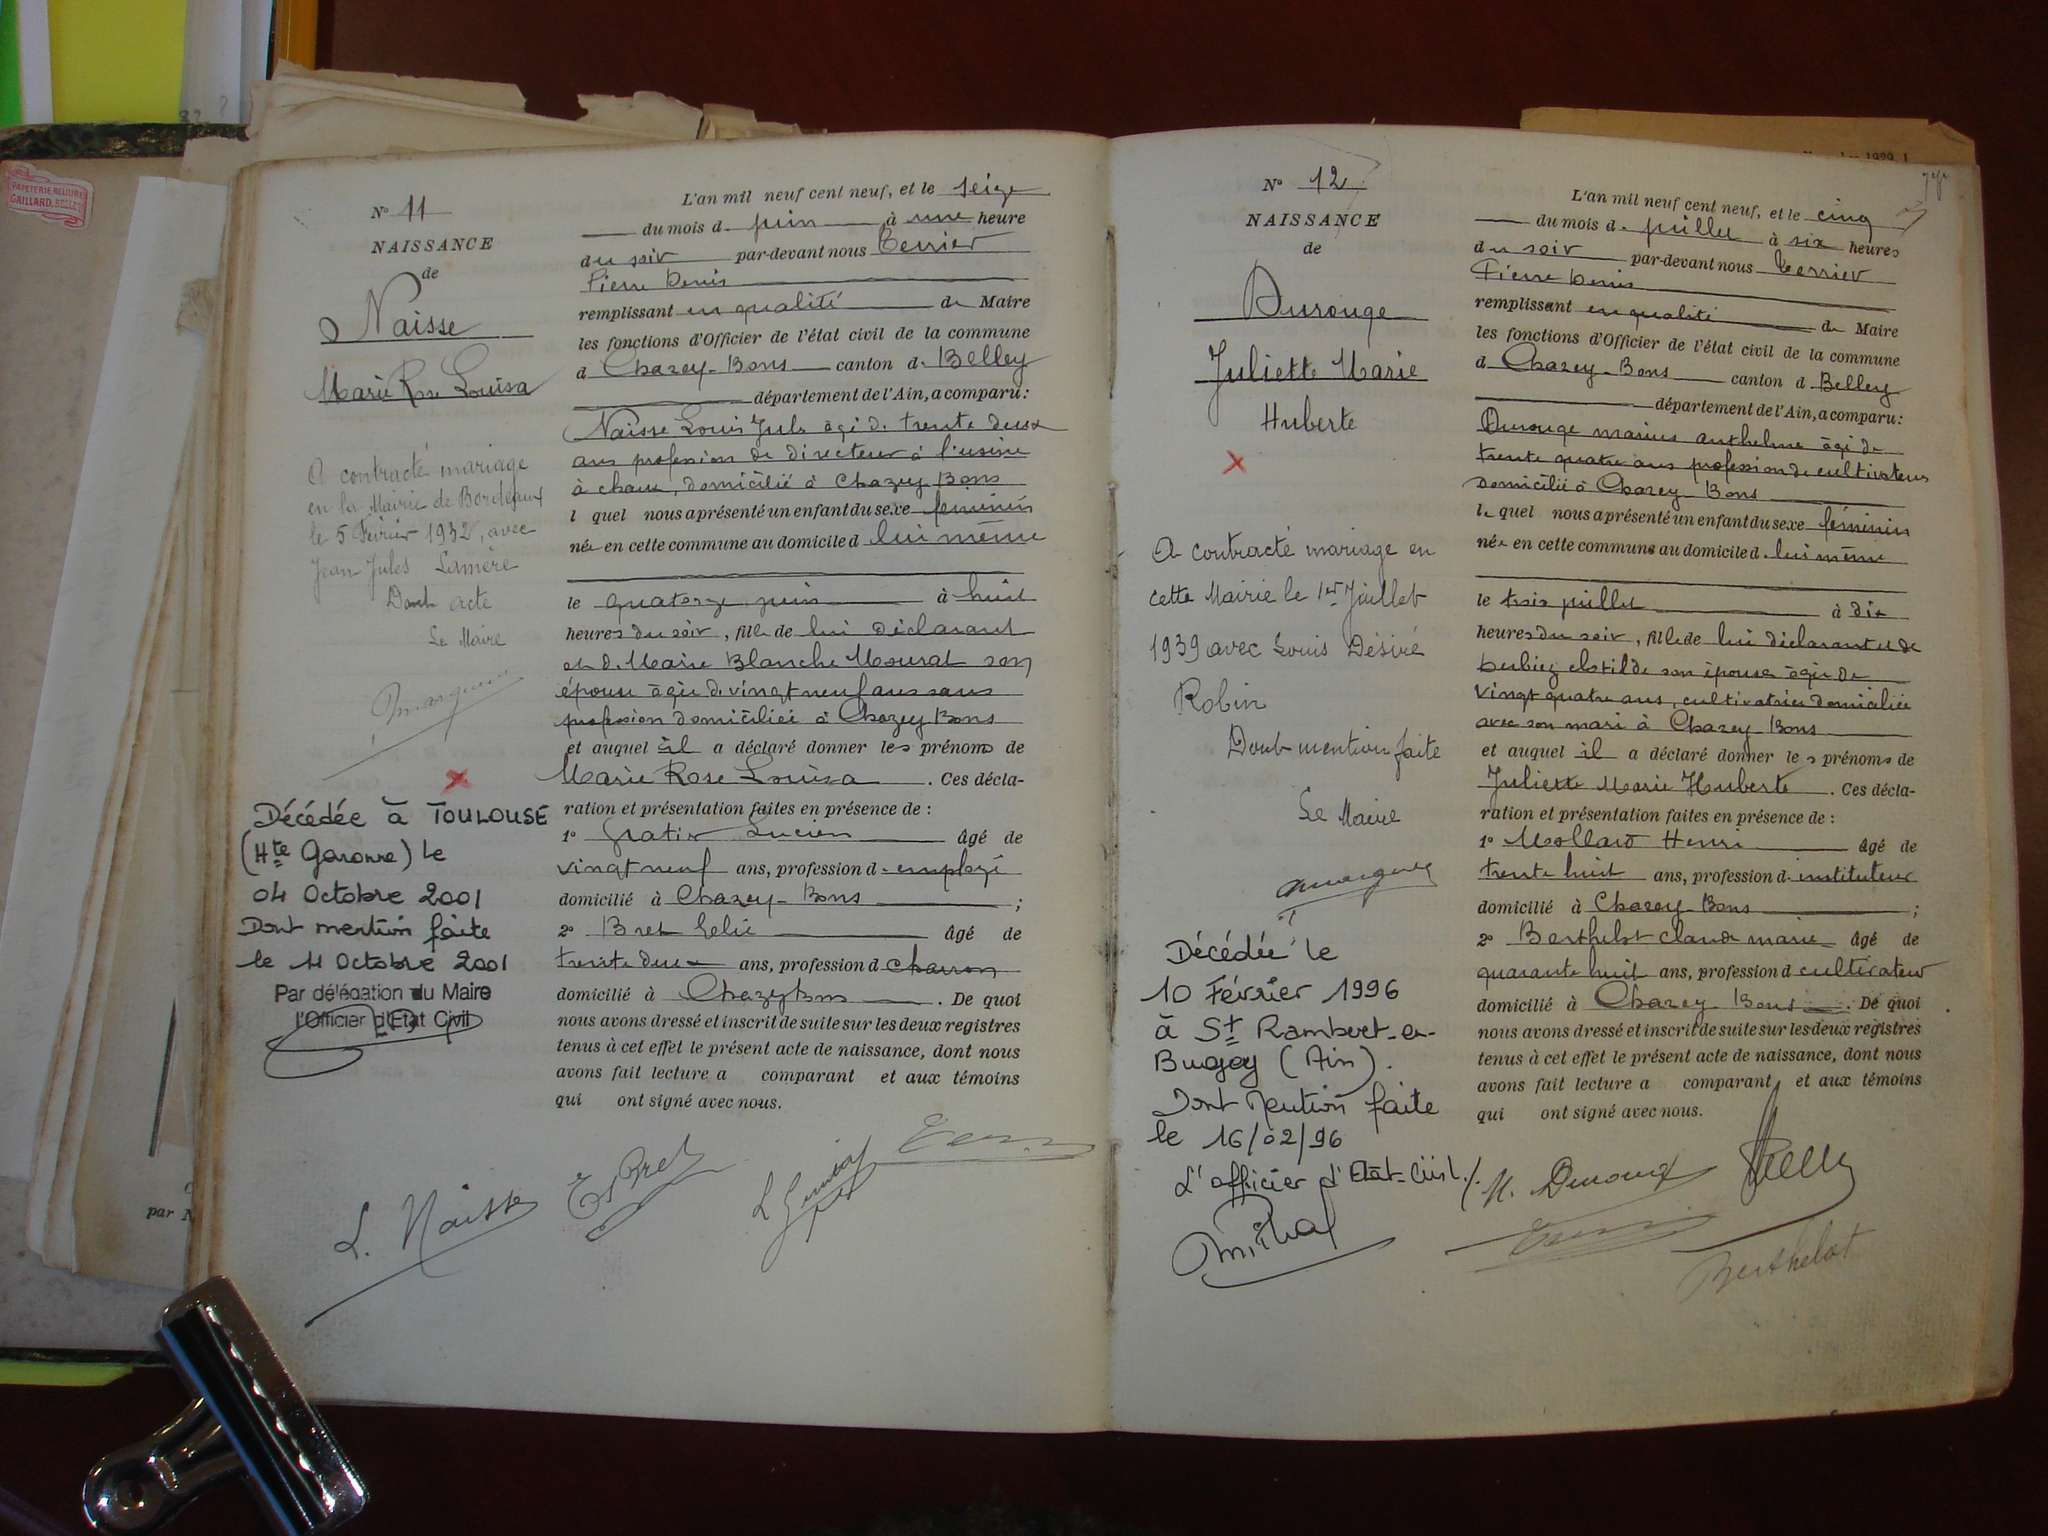 PAPETERIE RELIURE
GAILLARD, BELLEY
par
N° 11
NAISSANCE
de
Naisse
Marie Rose Louisa
A contracté mariage
en la Mairie de Bordeaux
le 5 Février 1932, avec
Jean Jules Lamère
Dont acte
Le Maire
Décédée à TOULOUSE
(Hte Garonne) le
04 Octobre 2001
Dont mention faite
le 11 Octobre 2001
Par délégation du Maire
l'Officier d'Etat Civil
L'an mil neuf cent neuf, et le seize
du mois d juin à une heure
du soir par-devant nous Terrier
Pierre Denis
remplissant en qualité de Maire
les fonctions d'Officier de l'état civil de la commune
d Chazey-Bons canton de Belley
département de l'Ain, a comparu :
Naisse Louis Jules âgé de trente deux
ans profession de directeur à l'usine
à chaux, domicilié à Chazey Bons
l quel nous a présenté un enfant du sexe féminin
née en cette commune au domicile d lui même
le quatorze juin à huit
heures du soir, fille de lui déclarant
et de Marie Blanche Mourat son
épouse âgée de vingt neuf ans sans
profession domiciliée à Chazey Bons
et auquel il a déclaré donner les prénoms de
Marie Rose Louisa. Ces décla-
ration et présentation faites en présence de :
1° Gratix Lucien âgé de
vingt neuf ans, profession d employé
domicilié à Chazey-Bons ;
2° Bret âgé de
trente deux ans, profession d charron
domicilié à Chazey Bons. De quoi
nous avons dressé et inscrit de suite sur les deux registres
tenus à cet effet le présent acte de naissance, dont nous
avons fait lecture a comparant et aux témoins
qui ont signé avec nous.
L. Naisse
Bret
N° 12
NAISSANCE
de
Durouge
Juliette Marie
Huberte
A contracté mariage en
cette Mairie le 1er Juillet
1939 avec Louis Désiré
Robin
Dont mention faite
Le Maire
Décédée le
10 Février 1996
à St Rambert-en-
Bugey (Ain).
Dont mention faite
le 16/02/96
L'officier d'Etat-Civil
L'an mil neuf cent neuf, et le cinq
du mois de juillet à six heures
du soir par-devant nous Terrier
Pierre Denis
remplissant en qualité de Maire
les fonctions d'Officier de l'état civil de la commune
d Chazey-Bons canton d Belley
département de l'Ain, a comparu :
Durouge marius anthelme âgé de
trente quatre ans profession de cultivateur
domicilié à Chazey Bons
le quel nous a présenté un enfant du sexe féminin
née en cette commune au domicile d lui même
le trois juillet à dix
heures du soir, fille de lui déclarant et de
clotilde son épouse âgée de
vingt quatre ans, cultivatrice domiciliée
avec son mari à Chazey-Bons
et auquel il a déclaré donner les prénoms de
Juliette Marie Huberte. Ces décla-
ration et présentation faites en présence de :
1° Mollard Henri âgé de
trente huit ans, profession d instituteur
domicilié à Chazey-Bons ;
2° Berthelot claude marie âgé de
quarante huit ans, profession d cultivateur
domicilié à Chazey Bons. De quoi
nous avons dressé et inscrit de suite sur les deux registres
tenus à cet effet le présent acte de naissance, dont nous
avons fait lecture a comparant et aux témoins
qui ont signé avec nous.
M. Durouge
Berthelot